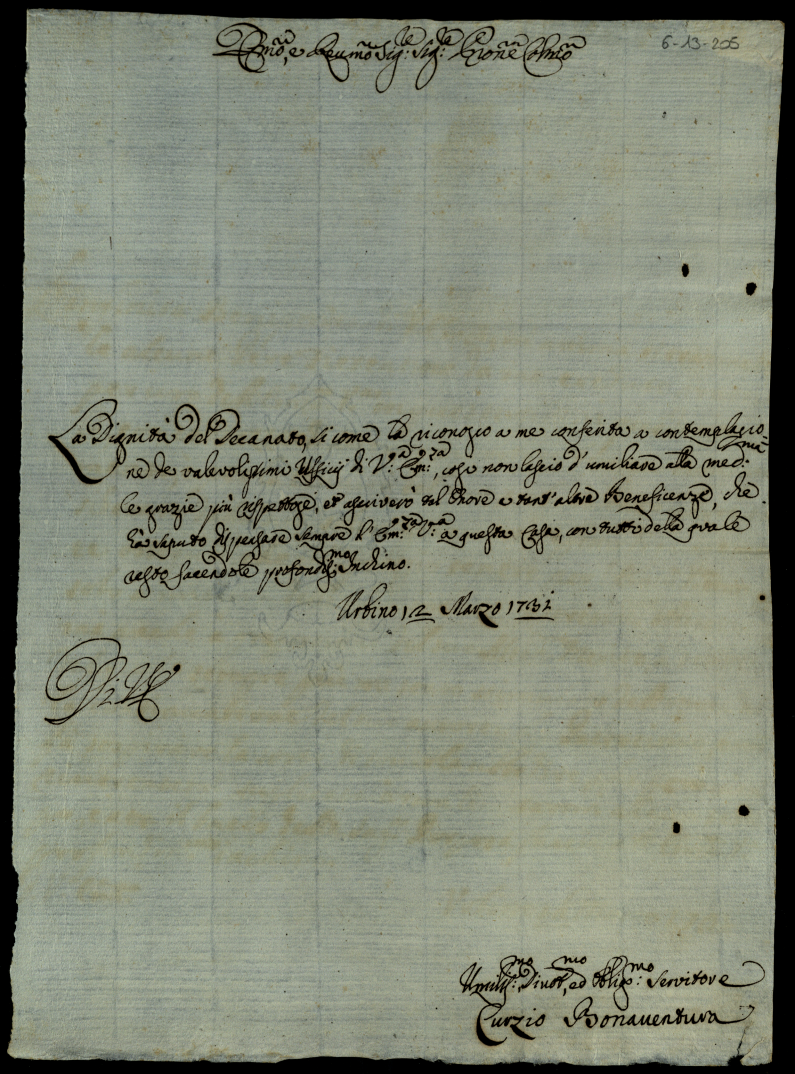 Em̃o, e Reum̃o Sig:re Sig:re Pr̃one Colm̃o
6-13-205
La Dignità del Decanato, si come la riconosco a me conferita a contemplazio-
ne de valevolissimi Ufficij di V:ra Em:za, così non lascio d'umiliare alla med:ma
le grazie più rispettose, et ascriverò tal Onore a tant'altre Beneficenze, che
hà saputo dispensare sempre l'Em:za V:ra a questa Casa, con tutti della quale
resto facendole profondis:mo Inchino.
Urbino 12 Marzo 1731
Di V E
Umilis:mo Divot:mo, ed Oblig:mo Servitore
Curzio Bonaventura